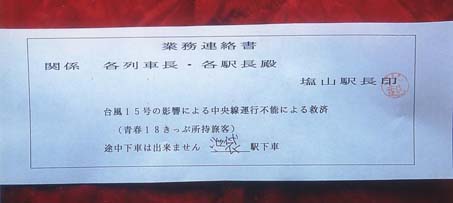 業務連絡書
関係 各列車長・各駅長殿
塩山駅長印
台風15号の影響による中央線運行不能による救済
(青春18きっぷ所持旅客)
途中下車は出来ません 駅下車